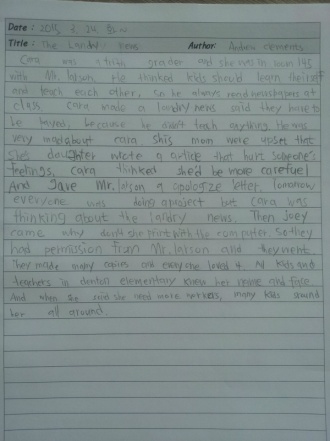 Date : 2015, 3, 24,
Title : The Landry News Author: Andrew clements
Cara was a fifth grader and she was in room 145
with Mr. larson. He thinked kids should learn
and teach each other, so he always read newspapers at
class. Cara made a landry news said they have to
be because he didn't teach anything. He was
very mad about cara his mom were upset that
she's daughter wrote a article that hurt someone's
feelings, cara thinked she'd be more careful
And gave Mr. larson a apologize letter. Tomorrow
everyone was doing a project but Cara was
thinking about the landry news. Then Joey
came why don't she print with the computer. So they
had permission from Mr. larson and they went.
They made many copies and everyone loved it. All kids and
teachers in denton elementary knew her name and face
And when she said she need more workers, many kids
her all around.